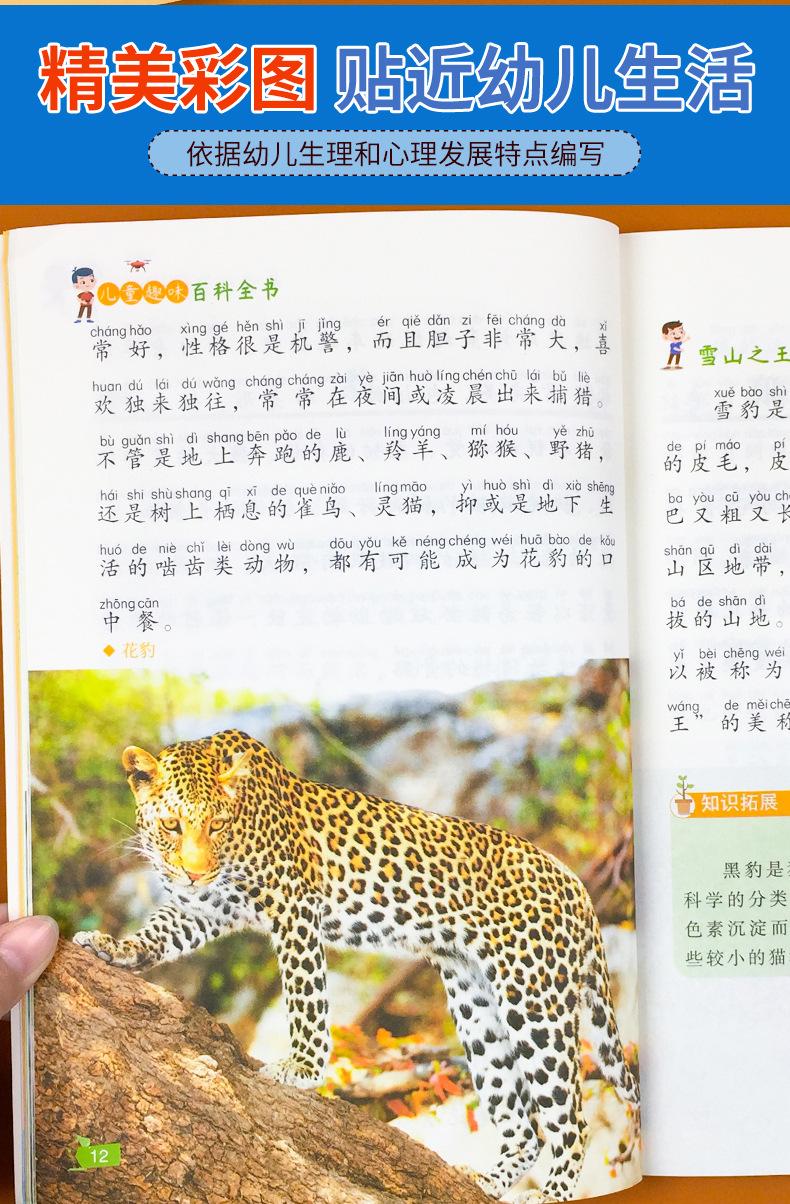 精美彩图 贴近幼儿生活
依据幼儿生理和心理发展特点编写
儿童趣味百科全书
cháng hǎo xìng gé hěn shì jī jǐng ér qiě dǎn zi fēi cháng dà xǐ
常好，性格很是机警，而且胆子非常大，喜
huan dú lái dú wǎng cháng cháng zài yè jiān huò líng chén chū lái bǔ liè
欢独来独往，常常在夜间或凌晨出来捕猎。
bù guǎn shì dì shang bēn pǎo de lù líng yáng mí hóu yě zhū
不管是地上奔跑的鹿、羚羊、猕猴、野猪，
hái shi shù shang qī xī de què niǎo líng māo yì huò shì dì xià shēng
还是树上栖息的雀鸟、灵猫，抑或是地下生
huó de niè chǐ lèi dòng wù dōu yǒu kě néng chéng wéi huā bào de kǒu
活的啮齿类动物，都有可能成为花豹的口
zhōng cān
中餐。
◆ 花豹
12
雪山之王
xuě bào shì
雪豹是
de pí máo pí
的皮毛，皮
ba yòu cū yòu
巴又粗又长
shān qū dì dài
山区地带，
bá de shān dì
拔的山地。
yǐ bèi chēng wéi
以被称为
wáng de měi
王”的美称
知识拓展
黑豹是
科学的分类
色素沉淀而
些较小的猫